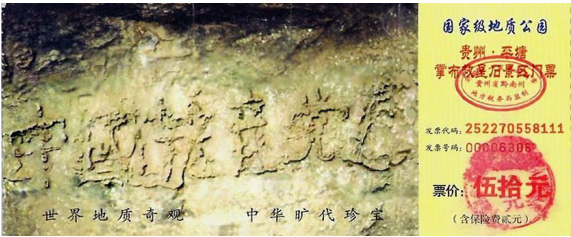 世界地质奇观 中华旷代珍宝
国家级地质公园
贵州·平塘
掌布救星石景区门票
贵州省黔南州
地方税务局监制
发票代码：252270558111
发票号码：00006306
票价：伍拾元
（含保险费贰元）